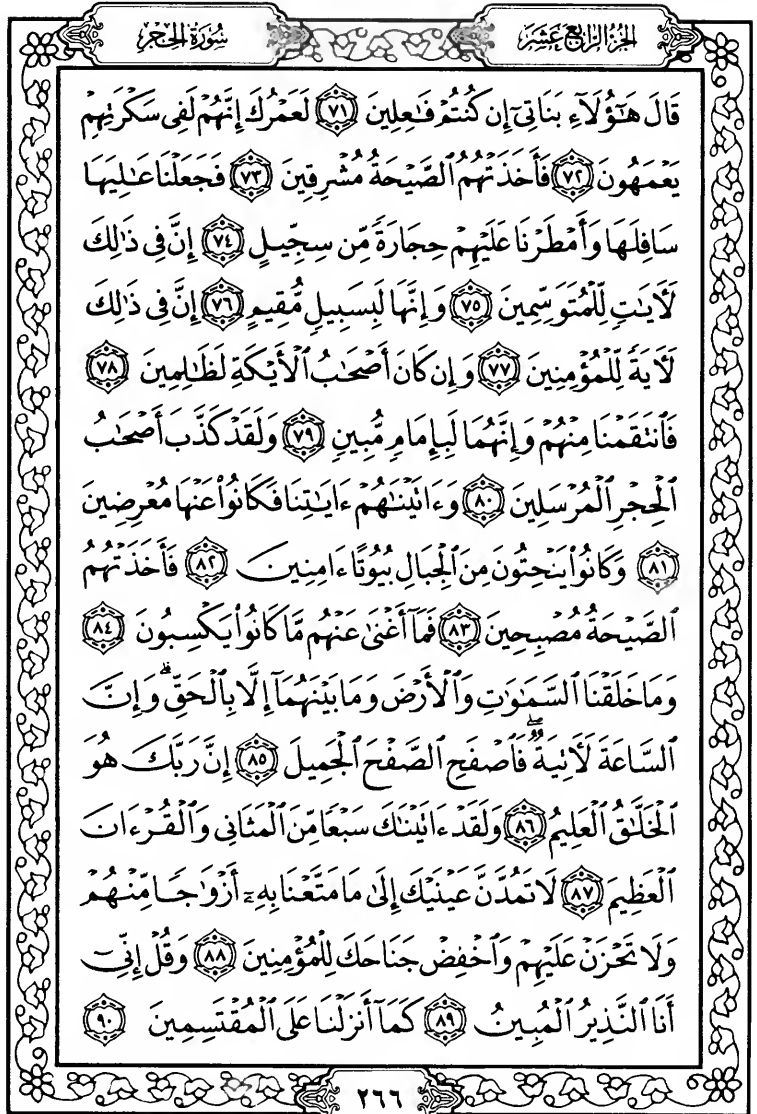 الجزء الرابع عشر
سورة الحجر
قَالَ هَٰٓؤُلَآءِ بَنَاتِىٓ إِن كُنتُمۡ فَٰعِلِينَ ﴿٧١﴾ لَعَمۡرُكَ إِنَّهُمۡ لَفِى سَكۡرَتِهِمۡ
يَعۡمَهُونَ ﴿٧٢﴾ فَأَخَذَتۡهُمُ ٱلصَّيۡحَةُ مُشۡرِقِينَ ﴿٧٣﴾ فَجَعَلۡنَا عَٰلِيَهَا
سَافِلَهَا وَأَمۡطَرۡنَا عَلَيۡهِمۡ حِجَارَةٗ مِّن سِجِّيلٍ ﴿٧٤﴾ إِنَّ فِى ذَٰلِكَ
لَأٓيَٰتٖ لِّلۡمُتَوَسِّمِينَ ﴿٧٥﴾ وَإِنَّهَا لَبِسَبِيلٖ مُّقِيمٍ ﴿٧٦﴾ إِنَّ فِى ذَٰلِكَ
لَأٓيَةٗ لِّلۡمُؤۡمِنِينَ ﴿٧٧﴾ وَإِن كَانَ أَصۡحَٰبُ ٱلۡأَيۡكَةِ لَظَٰلِمِينَ ﴿٧٨﴾
فَٱنتَقَمۡنَا مِنۡهُمۡ وَإِنَّهُمَا لَبِإِمَامٖ مُّبِينٖ ﴿٧٩﴾ وَلَقَدۡ كَذَّبَ أَصۡحَٰبُ
ٱلۡحِجۡرِ ٱلۡمُرۡسَلِينَ ﴿٨٠﴾ وَءَاتَيۡنَٰهُمۡ ءَايَٰتِنَا فَكَانُواْ عَنۡهَا مُعۡرِضِينَ
﴿٨١﴾ وَكَانُواْ يَنۡحِتُونَ مِنَ ٱلۡجِبَالِ بُيُوتًا ءَامِنِينَ ﴿٨٢﴾ فَأَخَذَتۡهُمُ
ٱلصَّيۡحَةُ مُصۡبِحِينَ ﴿٨٣﴾ فَمَآ أَغۡنَىٰ عَنۡهُم مَّا كَانُواْ يَكۡسِبُونَ ﴿٨٤﴾
وَمَا خَلَقۡنَا ٱلسَّمَٰوَٰتِ وَٱلۡأَرۡضَ وَمَا بَيۡنَهُمَآ إِلَّا بِٱلۡحَقِّۗ وَإِنَّ
ٱلسَّاعَةَ لَأٓتِيَةٞۖ فَٱصۡفَحِ ٱلصَّفۡحَ ٱلۡجَمِيلَ ﴿٨٥﴾ إِنَّ رَبَّكَ هُوَ
ٱلۡخَلَّٰقُ ٱلۡعَلِيمُ ﴿٨٦﴾ وَلَقَدۡ ءَاتَيۡنَٰكَ سَبۡعٗا مِّنَ ٱلۡمَثَانِى وَٱلۡقُرۡءَانَ
ٱلۡعَظِيمَ ﴿٨٧﴾ لَا تَمُدَّنَّ عَيۡنَيۡكَ إِلَىٰ مَا مَتَّعۡنَا بِهِۦٓ أَزۡوَٰجٗا مِّنۡهُمۡ
وَلَا تَحۡزَنۡ عَلَيۡهِمۡ وَٱخۡفِضۡ جَنَاحَكَ لِلۡمُؤۡمِنِينَ ﴿٨٨﴾ وَقُلۡ إِنِّىٓ
أَنَا ٱلنَّذِيرُ ٱلۡمُبِينُ ﴿٨٩﴾ كَمَآ أَنزَلۡنَا عَلَى ٱلۡمُقۡتَسِمِينَ ﴿٩٠﴾
٢٦٦